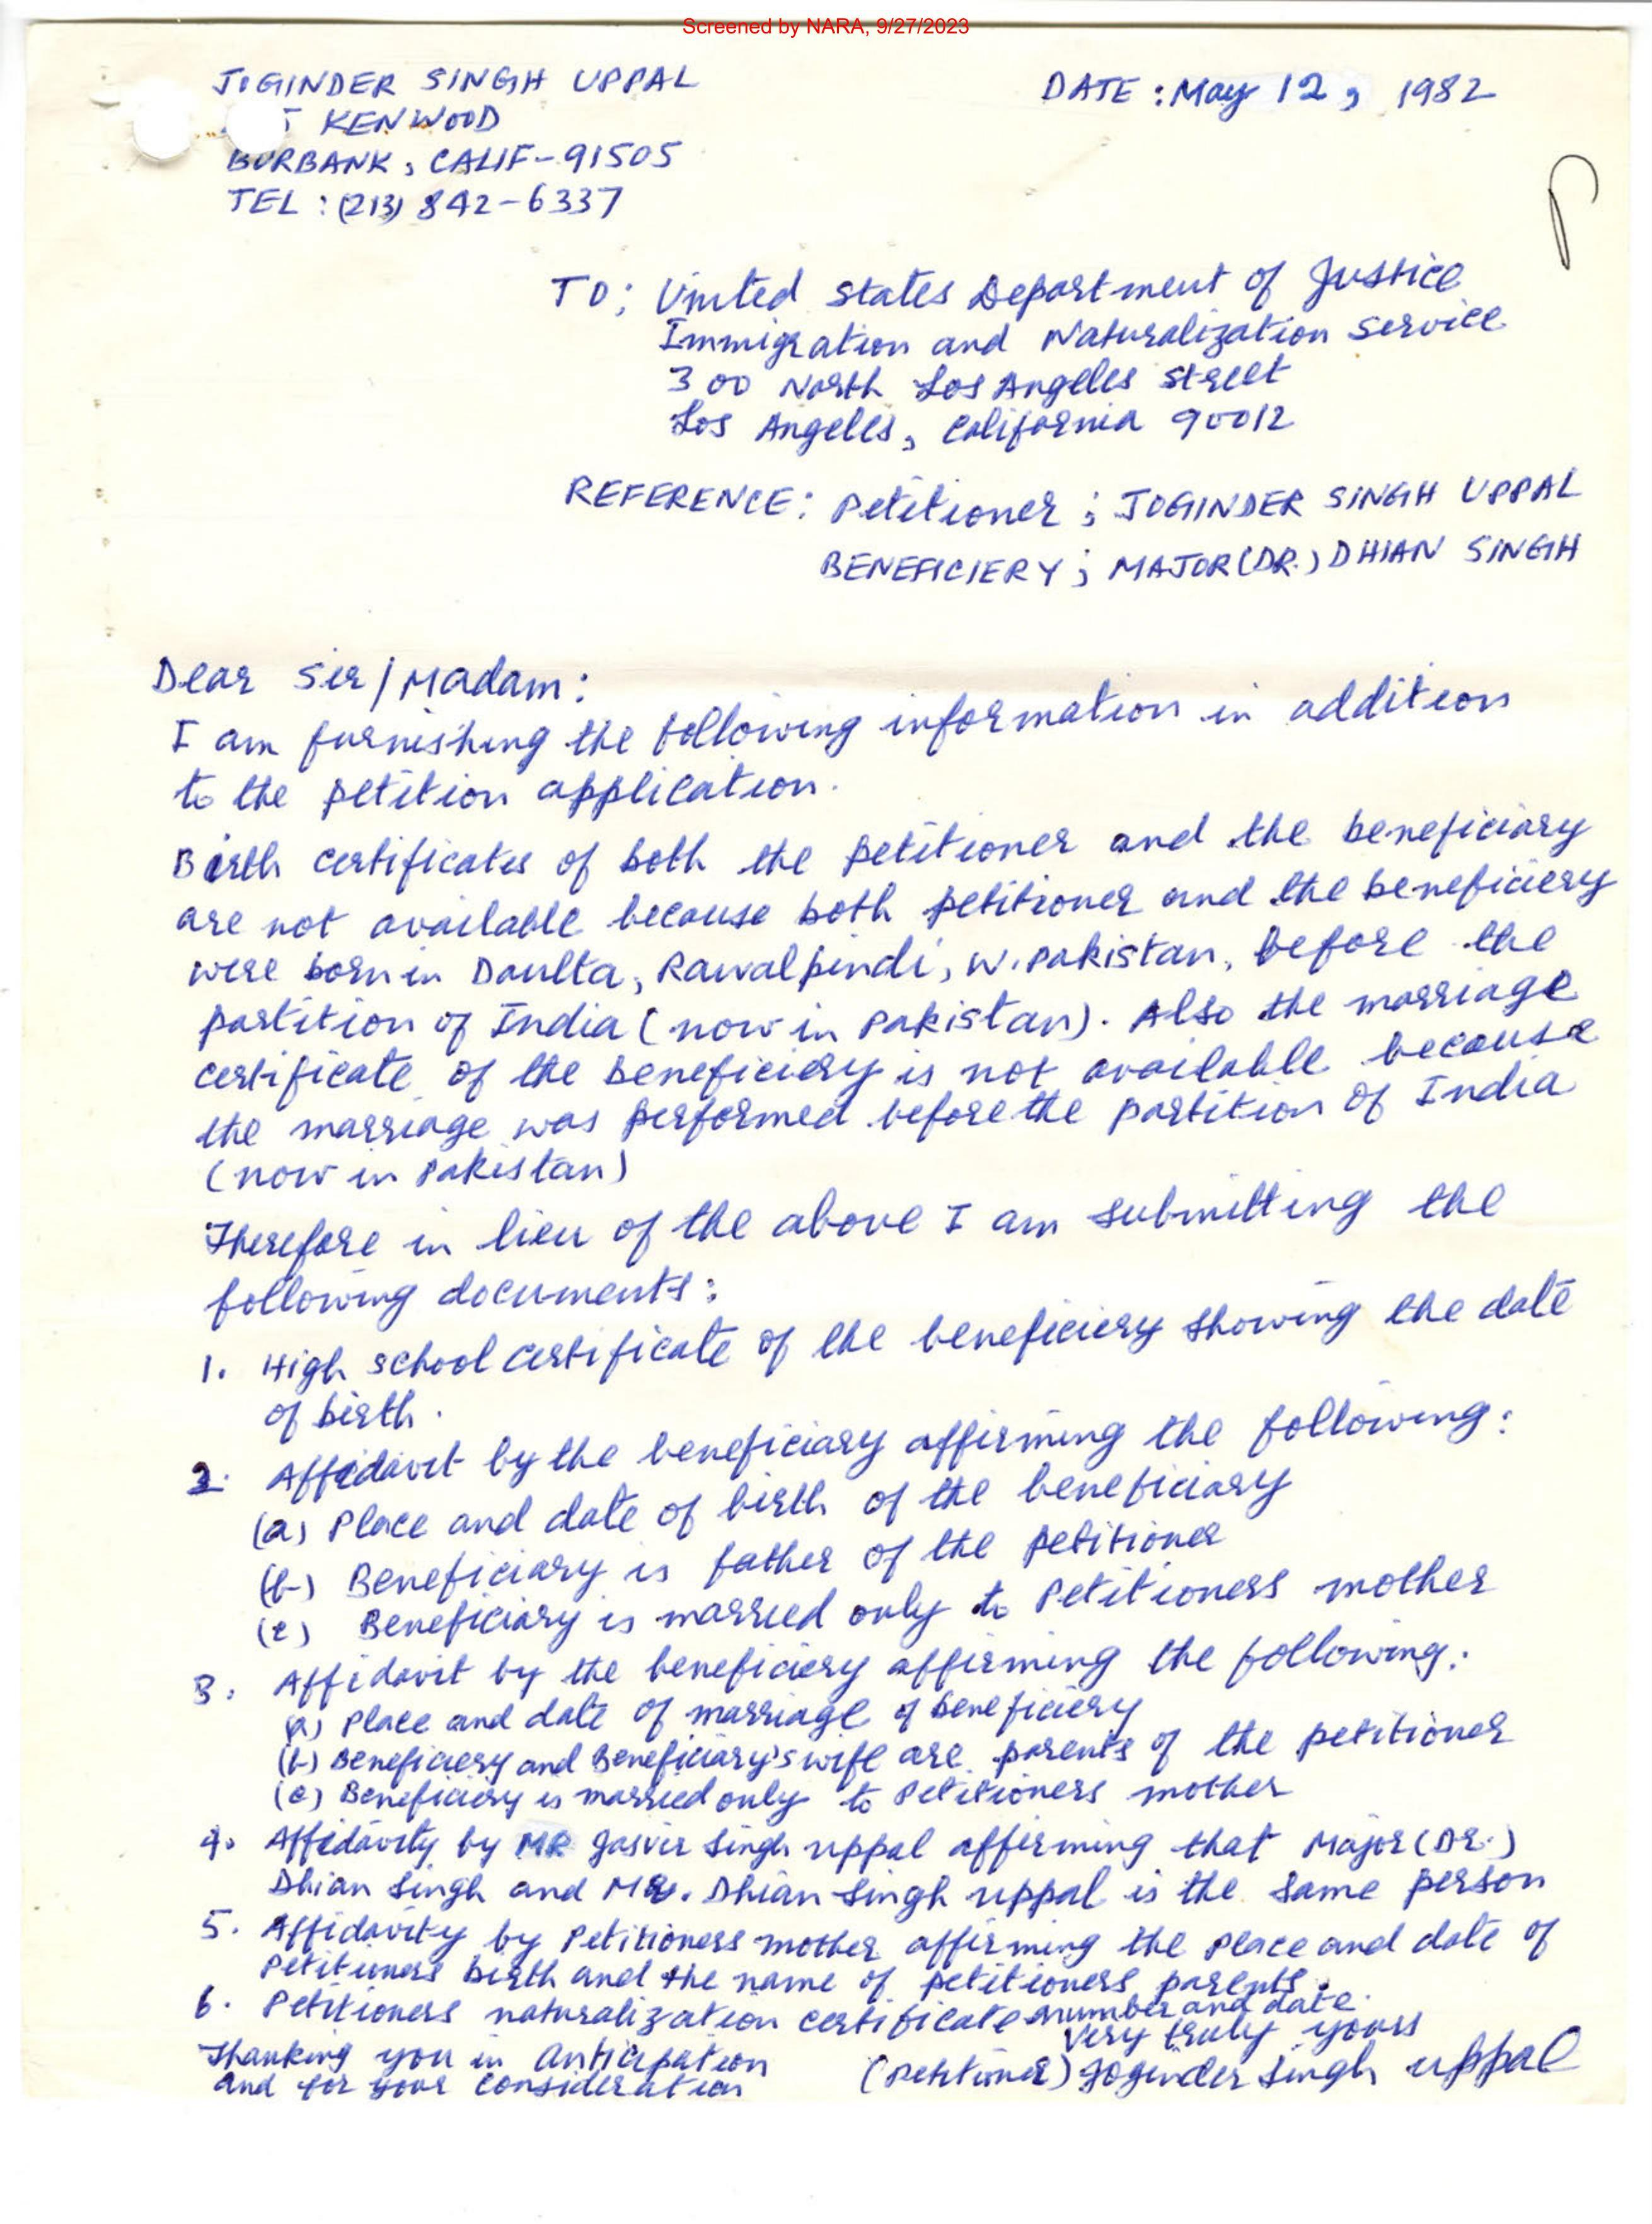 Screened by NARA, 9/27/2023
JOGINDER SINGH UPPAL
KENWOOD
BURBANK, CALIF-91505
TEL : (213) 842-6337
DATE : May 12, 1982
TO; United States Department of Justice
Immigration and Naturalization Service
300 North Los Angeles Street
Los Angeles, California 90012
REFERENCE: Petitioner; JOGINDER SINGH UPPAL
BENEFICIERY; MAJOR (DR.) DHIAN SINGH
Dear Sir/Madam:
I am furnishing the following information in addition
to the petition application.
Birth certificates of both the petitioner and the beneficiary
are not available because both petitioner and the beneficiery
were born in Daulta, Rawalpindi, W. Pakistan, before the
partition of India (now in Pakistan). Also the marriage
certificate of the beneficiery is not available because
the marriage was performed before the partition of India
(now in Pakistan)
Therefore in lieu of the above I am submitting the
following documents:
1. High school certificate of the beneficiery showing the date
of birth.
2. Affidavit by the beneficiary affirming the following:
(a) Place and date of birth of the beneficiary
(b) Beneficiary is father of the petitioner
(c) Beneficiary is married only to Petitioners mother
3. Affidavit by the beneficiery affirming the following:
(a) Place and date of marriage of beneficiery
(b) Beneficiery and Beneficiary's wife are parents of the petitioner
(c) Beneficiery is married only to Petitioners mother
4. Affidavity by MR Jasvir Singh uppal affirming that Major (Dr.)
Dhian Singh and Mr. Dhian Singh uppal is the same person
5. Affidavity by Petitioners mother affirming the Place and date of
Petitioners birth and the name of petitioners parents.
6. Petitioners naturalization certificate number and date.
Very truly yours
Thanking you in Anticipation
and for your consideration
(Petitioner) Joginder Singh uppal